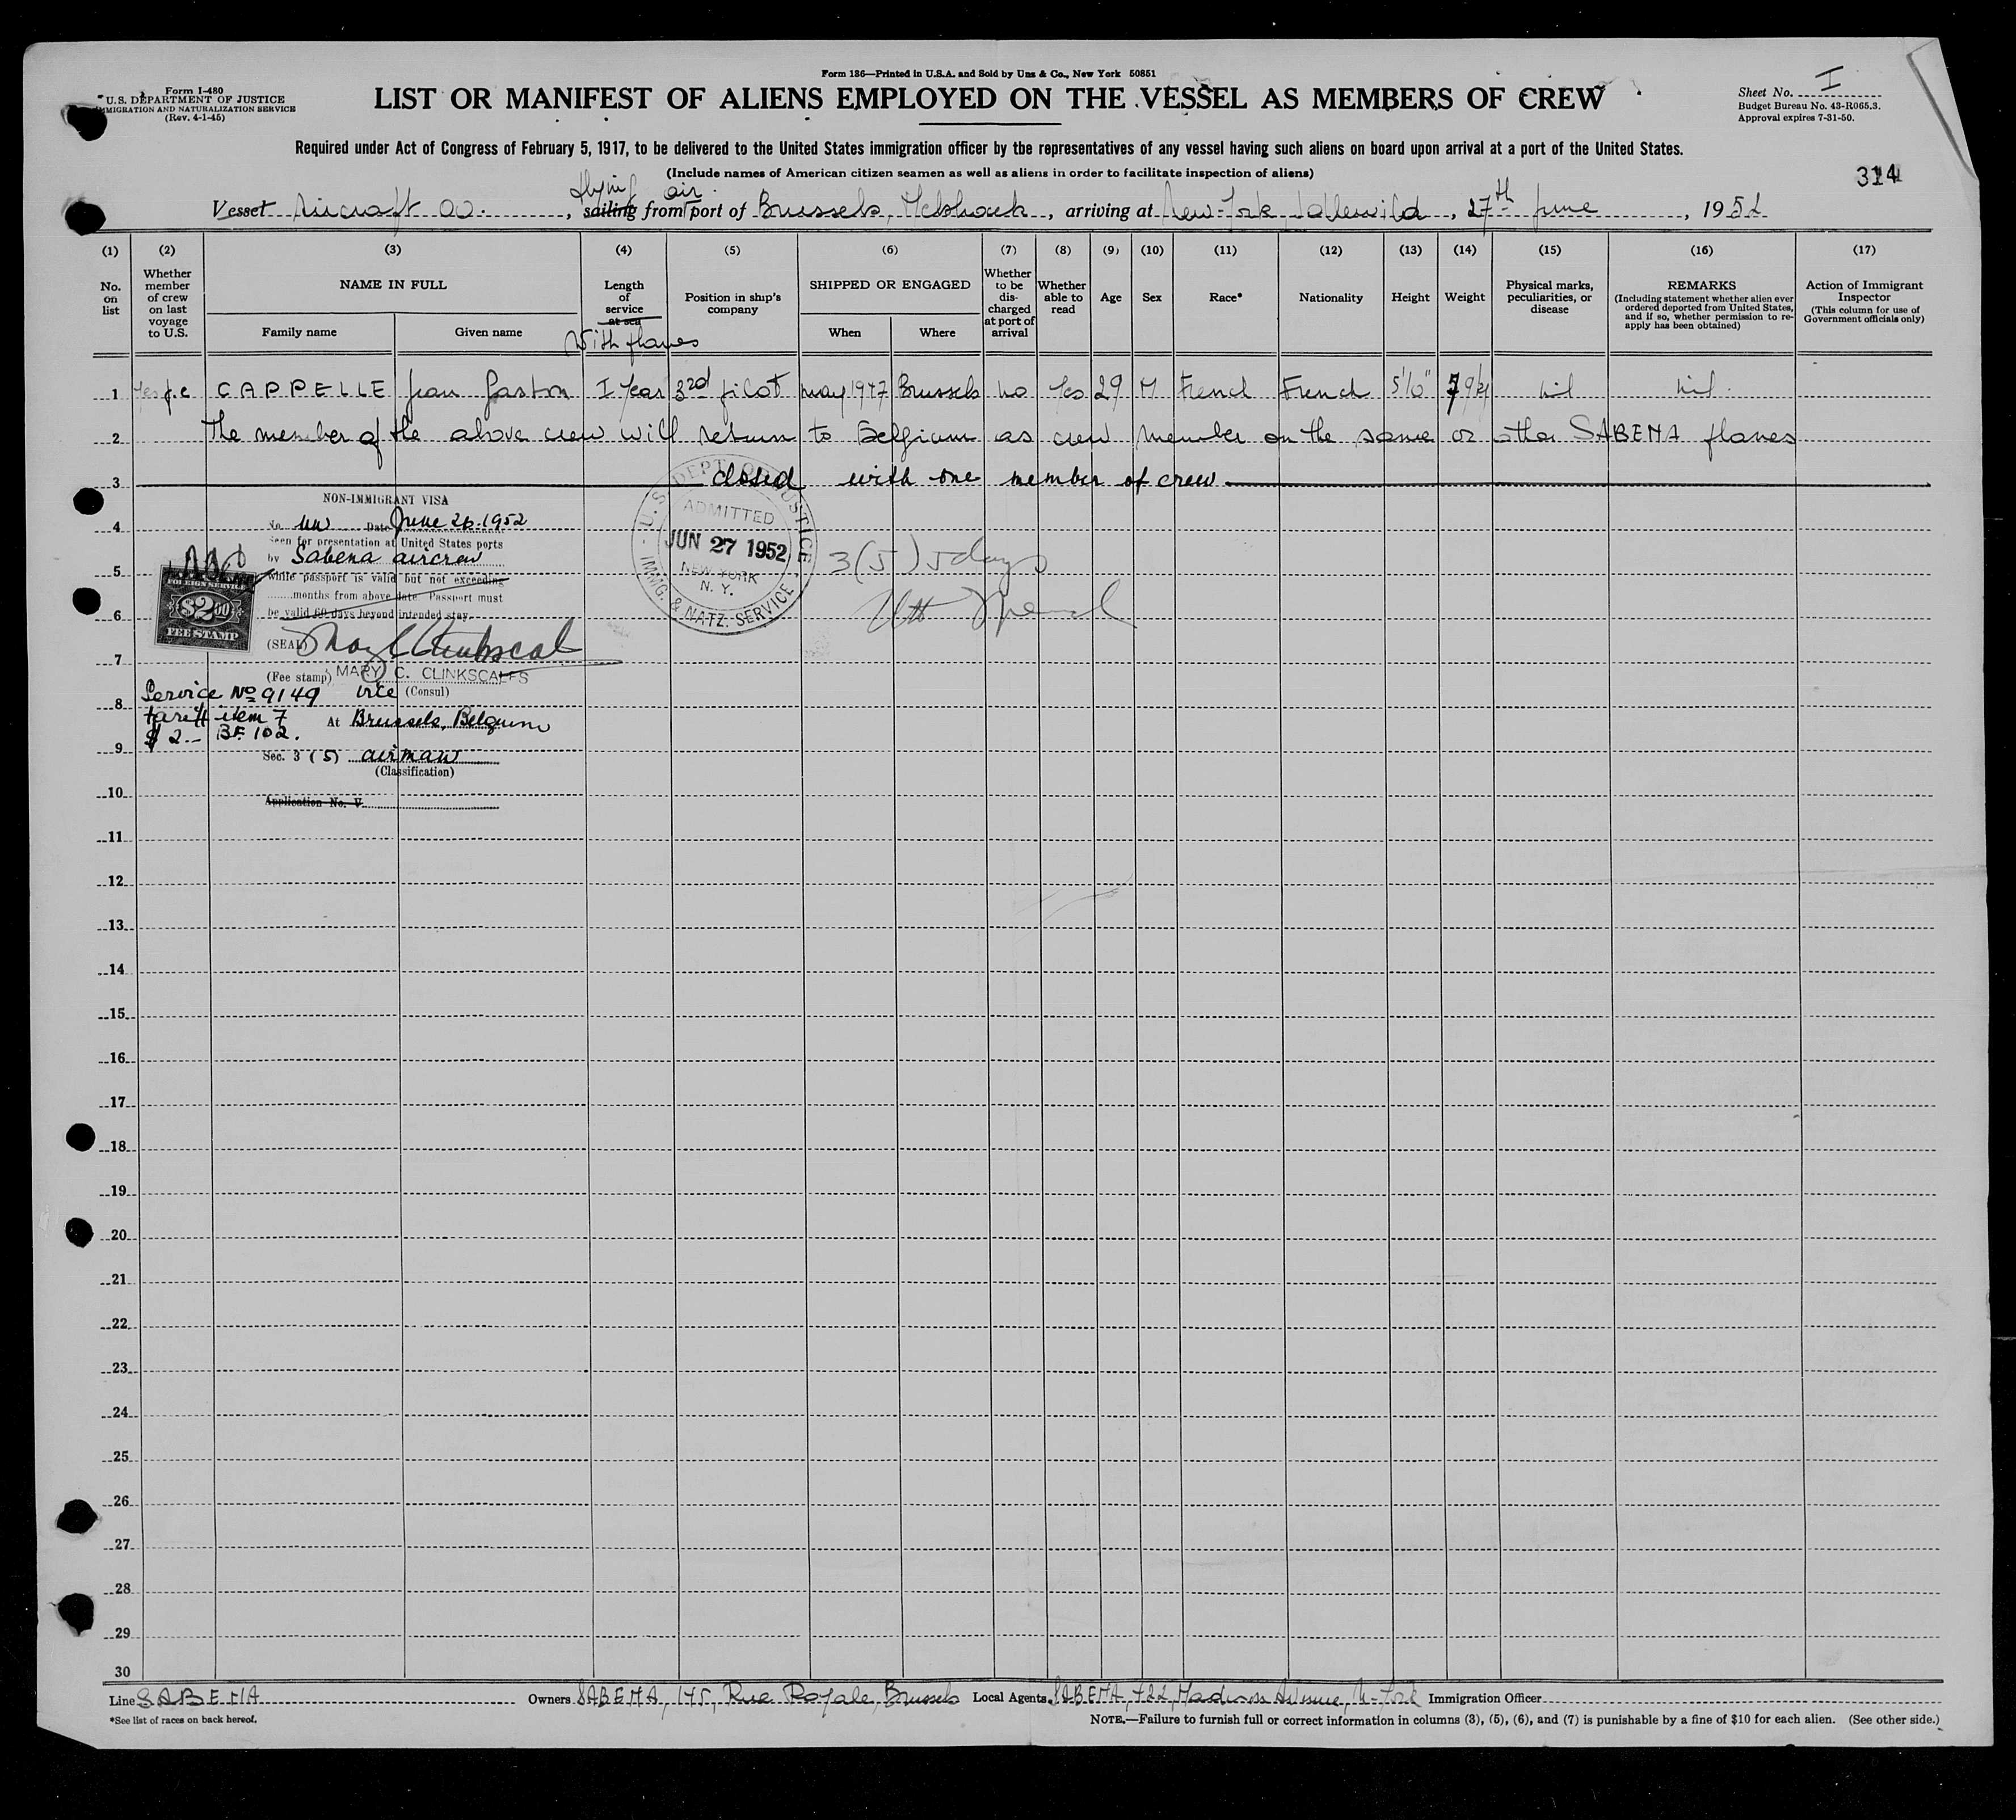 Form 136—Printed in U.S.A. and Sold by Unz & Co., New York 50851
Form I-480
U.S. DEPARTMENT OF JUSTICE
IMMIGRATION AND NATURALIZATION SERVICE
(Rev. 4-1-45)
LIST OR MANIFEST OF ALIENS EMPLOYED ON THE VESSEL AS MEMBERS OF CREW
Sheet No. I
Budget Bureau No. 43-R065.3.
Approval expires 7-31-50.
Required under Act of Congress of February 5, 1917, to be delivered to the United States immigration officer by the representatives of any vessel having such aliens on board upon arrival at a port of the United States.
(Include names of American citizen seamen as well as aliens in order to facilitate inspection of aliens)
314
flying air
Vessel Aircraft OO. , sailing from port of Brussels, Melsbroek , arriving at New-York Idlewild , 27th June , 1952
(1) (2) (3) (4) (5) (6) (7) (8) (9) (10) (11) (12) (13) (14) (15) (16) (17)
No. on list
Whether member of crew on last voyage to U.S.
NAME IN FULL
Family name
Given name
Length of service at sea
With planes
Position in ship's company
SHIPPED OR ENGAGED
When
Where
Whether to be discharged at port of arrival
Whether able to read
Age
Sex
Race*
Nationality
Height
Weight
Physical marks, peculiarities, or disease
REMARKS
(Including statement whether alien ever ordered deported from United States, and if so, whether permission to reapply has been obtained)
Action of Immigrant Inspector
(This column for use of Government officials only)
1 Yes J.C CAPPELLE Jean Gaston I Year 3rd pilot may 1947 Brussels no Yes 29 M French French 5'10" nil nil.
2 The member of the above crew will return to Belgium as crew member on the same or other SABENA planes
3 closed with one member of crew
NON-IMMIGRANT VISA
No. Date June 26.1952
Seen for presentation at United States ports
by Sabena aircrew
while passport is valid but not exceeding
months from above date. Passport must
be valid 60 days beyond intended stay.
FOREIGN SERVICE
$2.00
FEE STAMP
(SEAL) Mary C Clinkscales
(Fee stamp) MARY C. CLINKSCALES
vice (Consul)
Service No 9149
tariff item 7
$ 2.- BF. 102.
At Brussels, Belgium
Sec. 3 (5) airman
(Classification)
Application No. V
U.S. DEPT. OF JUSTICE
ADMITTED
JUN 27 1952
NEW YORK
N. Y.
IMMG. & NATZ. SERVICE
3(5) 5 days
4
5
6
7
8
9
10
11
12
13
14
15
16
17
18
19
20
21
22
23
24
25
26
27
28
29
30
Line SABENA Owners SABENA, 145, Rue Royale, Brussels Local Agents SABENA, 422, Madison Avenue, N-York Immigration Officer
*See list of races on back hereof.
NOTE.—Failure to furnish full or correct information in columns (3), (5), (6), and (7) is punishable by a fine of $10 for each alien. (See other side.)